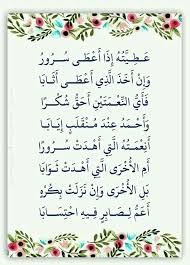 عَطِيَّتُهُ إِذَا أَعْطَى سُرُورُ
وَإِنْ أَخَذَ الَّذِي أَعْطَى أَثَابَا
فَأَيُّ النِّعْمَتَيْنِ أَحَقُّ شُكْرًا
وَأَحْمَدُ عِنْدَ مُنْقَلَبٍ إِيَابَا
أَنِعْمَتُهُ الَّتِي أَهْدَتْ سُرُورًا
أَمِ الْأُخْرَى الَّتِي أَهْدَتْ ثَوَابَا
بَلِ الْأُخْرَى وَإِنْ نَزَلَتْ بِكُرْهٍ
أَعَمُّ لِصَابِرٍ فِيهِ احْتِسَابَا